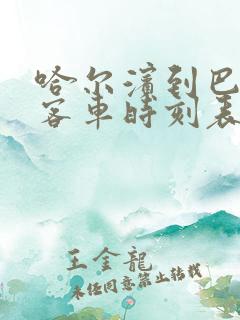 哈尔滨到巴
客车时刻表
王金龍
未经同意禁止转载